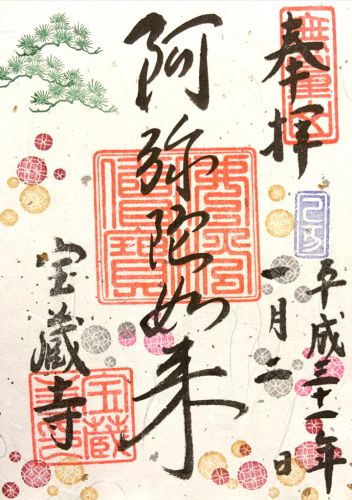 奉拝
己亥
平成三十一年
一月二日
阿弥陀如来
宝蔵寺